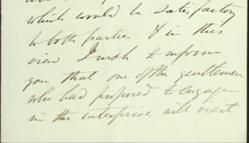 which would be satisfactory
to both parties & in this
view I wish to inform
you that one of the gentlemen
who had proposed to engage
in the enterprise will visit